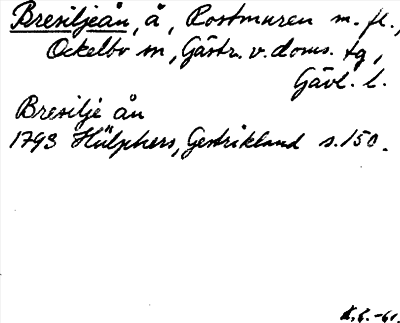 Bresiljeån, å, Rostmuren m. fl.,
Ockelbo sn, Gästr. v. doms. tg,
Gävl. l.
Bresilje ån
1793 Hülphers, Gestrikland s. 150.